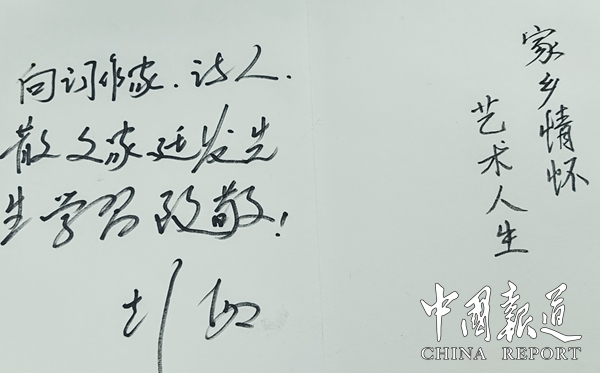 向词作家、诗人、
散文家廷发先
生学习致敬！
家乡情怀
艺术人生
中国报道
CHINA REPORT